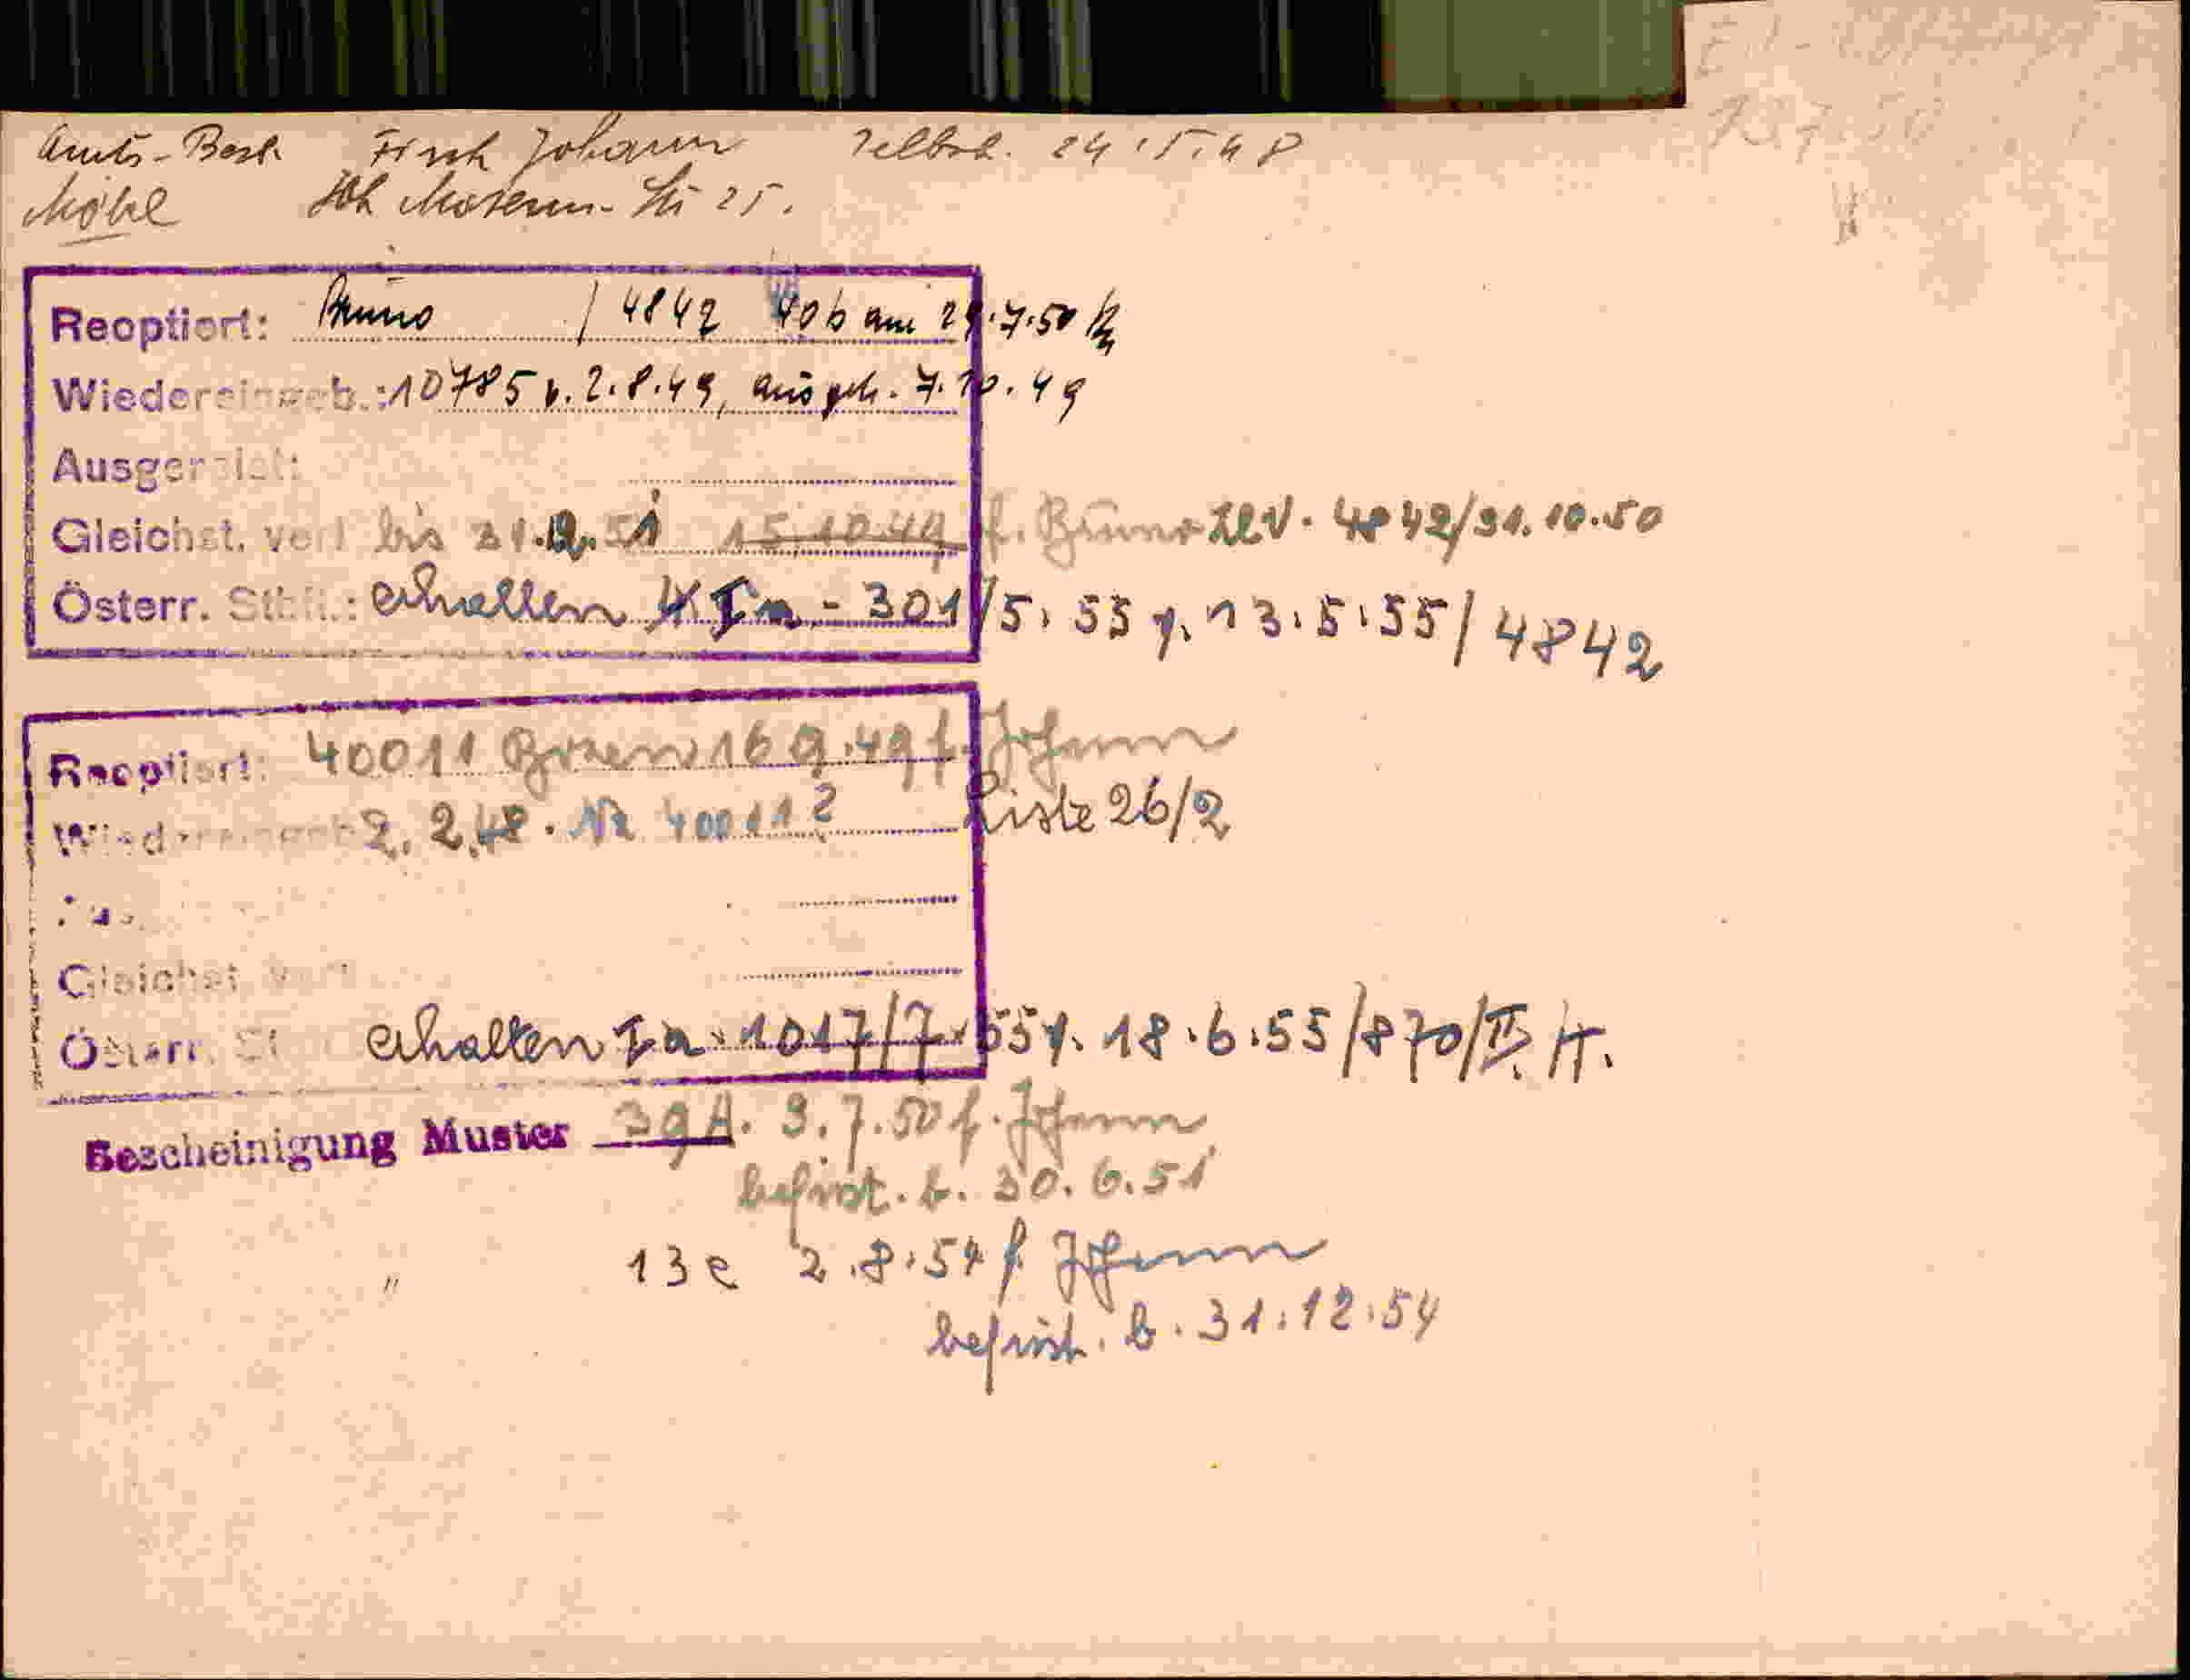 Amts-Besch Frick Johann Selbst. 24.5.48
Möbl Joh Str 25.
Reoptiert: Bruno / 4842 40b am 29.7.50
Wiedereingeb.: 10785 v. 2.8.49, ausgeh. 7.10.49
Ausgereist:
Gleichst. verl bis 31.12.51 15.10.49 f. Bruno 4842/31.10.50
Österr. Stb.: erhalten Ia - 301/5.55 v. 13.5.55/4842
Reoptiert: 40011 Bozen 16 9.49 f. Johann
2.2.48. Nr 40011 Liste 26/2
Gleichst verl
Österr. St erhalten Ia. 1017/7.55 v. 18.6.55/870/II. H.
Bescheinigung Muster 39A. 3.7.50 f. Johann
befrist. b. 30.6.51
" 13e 2.8.54 f. Johann
befrist. b. 31.12.54